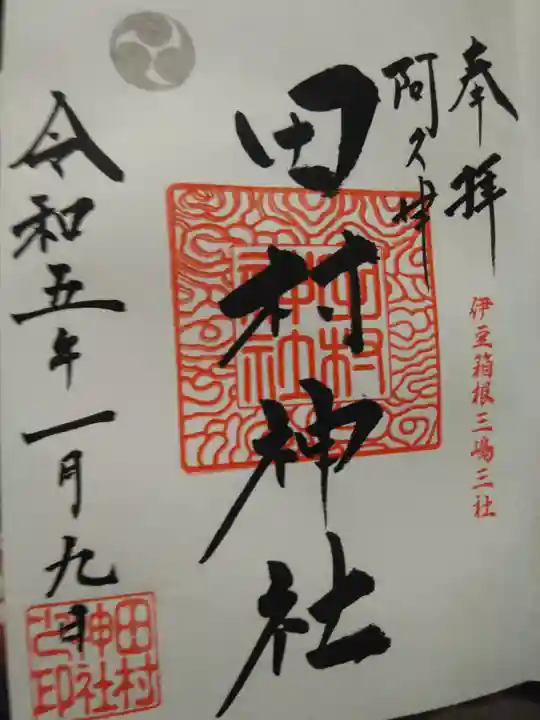 奉拝
阿久津
伊豆箱根三嶋三社
田村神社
田村神社
令和五年一月九日
田村神社之印